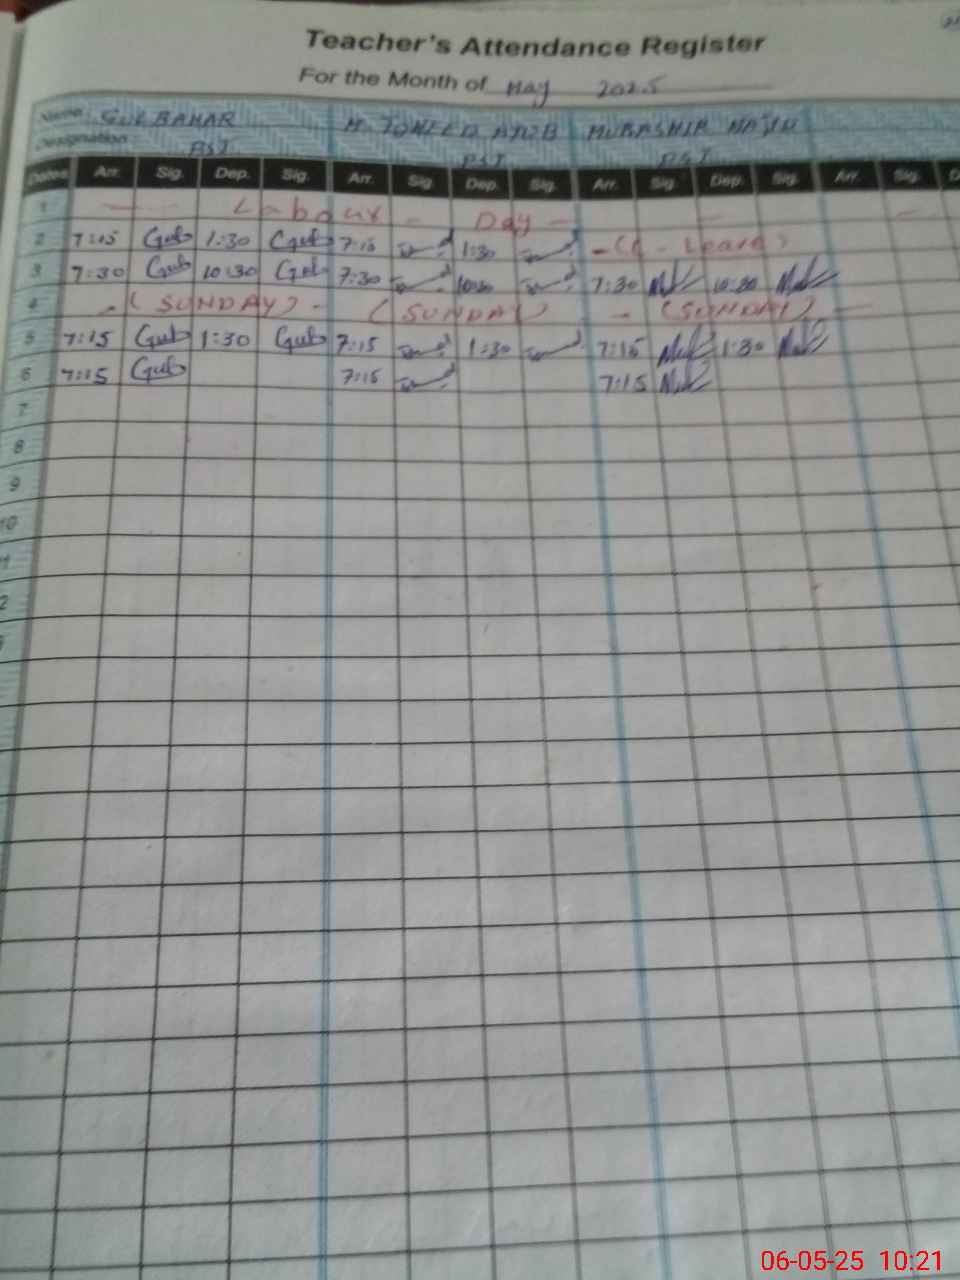 Teacher's Attendance Register
For the Month of May 2025
Name GULBAHAR M. MUBASHIR MAJID
Designation PST PST PST
Dates Arr. Sig. Dep. Sig. Arr. Sig. Dep. Sig. Arr. Sig. Dep. Sig. Arr. Sig. D
1 — Labour Day —
2 7:15 Gub 1:30 Gub 7:15 1:30 Leave)
3 7:30 Gub 10:30 Gub 7:30 10:30 7:30 10:30
4 - (SUNDAY) - (SUNDAY) - (SUNDAY) -
5 7:15 Gub 1:30 Gub 7:15 1:30 7:15 1:30
6 7:15 Gub 7:15 7:15
7
8
9
10
1
2
06-05-25 10:21